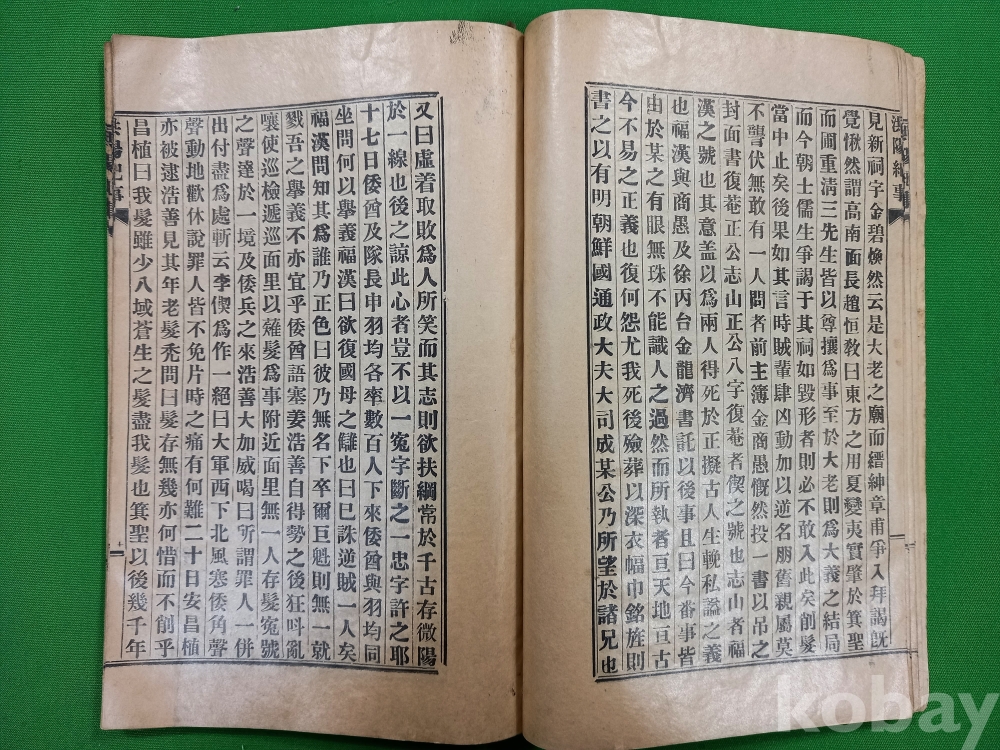 洪陽紀事
見新祠字金碧煥然云是大老之廟而縉紳章甫爭入拜謁旣
覺愀然謂高南面長趙恒敎曰東方之用夏變夷實肇於箕聖
而闡重清三先生皆以尊攘爲事至於大老則爲大義之結局
而今朝士儒生爭謁于其祠如毁形者則必不敢入此矣削髮
當中止矣後果如其言時賊輩肆凶動加以逆名丽舊親屬莫
不讋伏無敢有一人問者前主簿金商愚慨然投一書以吊之
封面書復菴正公志山正公八字復菴者偰之號也志山者福
漢之號也其意盖以爲兩人得死於正擬古人生輓私謚之義
也福漢與商愚及徐丙台金龍濟書託以後事且曰今番事皆
由於某之有眼無珠不能識人之過然而所執者亘天地亘古
今不易之正義也復何怨尤我死後殮葬以深衣幅巾銘旌則
書之以有明朝鮮國通政大夫大司成某公乃所望於諸兄也
又曰虛着取敗爲人所笑而其志則欲扶綱常於千古存微陽
於一線也後之諒此心者豈不以一寃字斷之一忠字許之耶
十七日倭酋及隊長申羽均各率數百人下來倭酋與羽均同
坐問何以擧義福漢曰欲復國母之讎也曰巳誅逆賊一人矣
福漢問知其爲誰乃正色曰彼乃無名下卒爾巨魁則無一就
戮吾之擧義不亦宜乎倭酋語塞姜浩善自得勢之後狂呌亂
嚷使巡檢遞巡面里以薙髮爲事附近面里無一人存髮寃號
之聲達於一境及倭兵之來浩善大加威喝曰所謂罪人一併
出付盡爲處斬云李偰爲作一絕曰大軍西下北風寒倭角聲
聲動地歡休說罪人皆不免片時之痛有何難二十日安昌植
亦被逮浩善見其年老髮禿問曰髮存無幾亦何惜而不削乎
昌植曰我髮雖少八域蒼生之髮盡我髮也箕聖以後幾千年
洪陽紀事
kobay